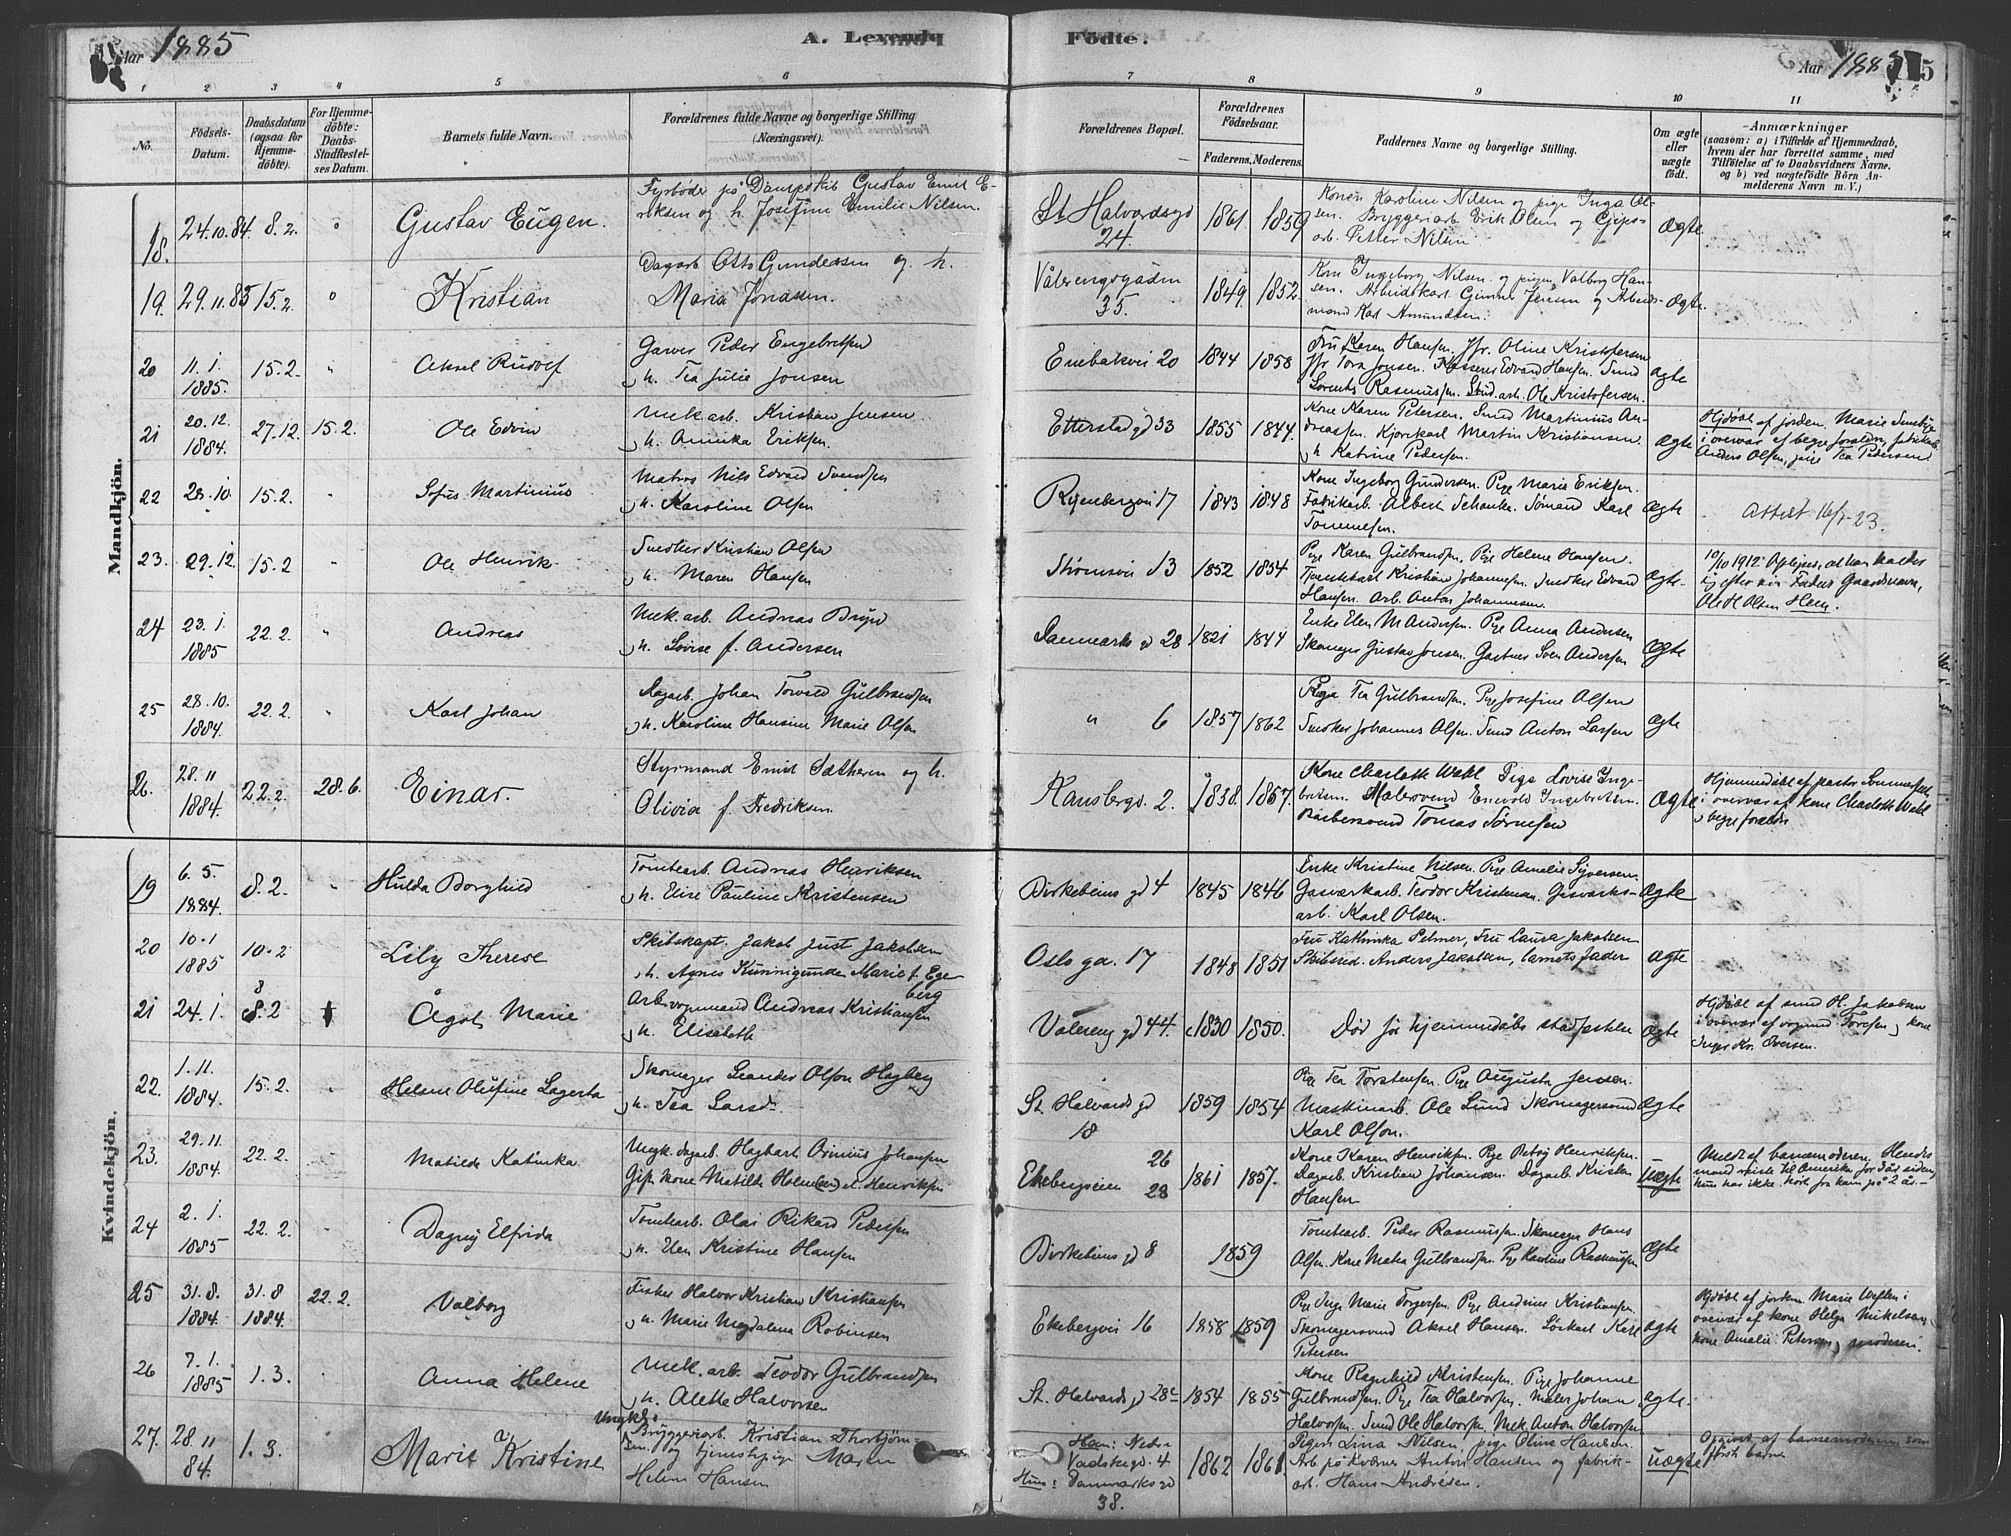 Aar 1885
A. Levende
Födte.
Aar 1885
5
1 2 3 4 5 6 7 8 9 10 11
No.
Födsels-Datum.
Daabsdatum (ogsaa for Hjemmedöbte).
For Hjemmedöbte: Daabs-Stadfæstelses Datum.
Barnets fulde Navn.
Forældrenes fulde Navne og borgerlige Stilling (Næringsvei).
Forældrenes Bopæl.
Forældrenes Födselsaar.
Faderens. Moderens.
Faddernes Navne og borgerlige Stilling.
Om ægte eller uægte födt.
Anmærkninger
(saasom: a) i Tilfælde af Hjemmedaab, hvem der har forrettet samme, med Tilföielse af to Daabsvidners Navne, og b) ved uægtefödte Börn Anmelderens Navn m. V.)
Mandkjön.
18. 24.10.84 8.2. " Gustav Eugen.
Fyrbøder på Dampskib Gustav Emil Eriksen og h. Josefine Emilie Nilsen.
St Halvardsgd 24. 1861 1859
Konen Karoline Nilsen og pige Inga Olsen. Bryggeriarb Erik Olsen og Gipsarb. Petter Nilsen
Ægte
19. 29.11.83 15.2. " Kristian
Dagarb Otto Gundersen og h. Maria Jonassen.
Vålerengsgaden 35. 1849. 1852.
Kone Ingeborg Nilsen og pigen Valborg Hansen. Arbeidskarl Gunner Jensen og Arbeidsmand Karl Amundsen.
Ægte.
20 11.1. 1885. 15.2. " Aksel Rudolf
Garver Peder Engebretsen
h. Tea Julie Jonsen
Enebakvei 20 1844 1858
Fru Karen Hansen. Jfr. Oline Kristofersen
Jfr Tora Jonsen. Kasserer Edvard Hansen. Smed
Lorents Rasmussen. Stud. arb. Ole Kristofersen.
Ægte
21 20.12. 1884. 27.12. 15.2. Ole Edvin
Mek arb. Kristian Jensen
h. Annika Eriksen.
Etterstad gd 33 1855 1844.
Kone Karen Petersen. Smed Martinius Andreassen. Kjørekarl Martin Kristiansen
h Katrine Pedersen.
Ægte
Hjdøbt af jordem. Marie
i overvær af begge foreldre, fabrikarb.
Anders Olsen, pige Tea Pedersen
22 28.10. 15.2. " Sofus Martinius
Matros Nils Edvard Svendsen
h. Karoline Olsen
17 1843 1848
Kone Ingeborg Gundersen. Pige Marie Eriksen.
Fabrikarb. Albert Schanke. Sømand Karl
Tommesen.
Ægte
Attest 16/7-23.
23. 29.12. 15.2 " Ole Henrik
Snedker Kristian Olsen
h. Maren Hansen
Strømsvei 13 1852 1854
Pige Karen Gulbrandsen. Pige Helene Hansen.
Tjenestekarl Kristian Johannesen. Snedker Edvard
Hansen. Arb. Anton Johannesen.
Ægte.
10/10 1912 Oplyses, at han kaldes
sig efter sin Faders Gaardsnavn,
Ole H. Olsen Hem.
24 23.1. 1885 22.2. " Andreas
Mek arb. Andreas Bruun
h. Lovise f. Andersen
Danmarks gd 28 1821 1844
Enke Elen M Andersen. Pige Anna Andersen
Skomager Gustav Jonsen. Gartner Sven Andersen
Ægte
25 28.10. 1884. 22.2. " Karl Johan
Dagarb. Johan Torvald Gulbrandsen
h. Karoline Hansine Marie Olsen
" 6 1857 1862
Pige Tea Gulbrandsen. Pige Josefine Olsen
Snedker Johannes Olsen. Smed Anton Larsen
Ægte
26. 28.11 1884. 22.2. 28.6. Einar.
Styrmand Emil Sætheren og h.
Olivia f. Fredriksen.
Kansbergd. 2. 1838. 1857.
Kone Charlotte Wahl Pige Lovise Ingebretsen. Malersvend Enevold Ingebretsen.
Barbersvend Tomas Sørensen
Ægte
Hjemmedøbt af pastor Sommerfeldt
i overvær af kone Charlotte Wahl
begge forældre
Kvindekjön.
19 6.5. 1884. 8.2. " Hulda Borghild
Tomtearb. Andreas Henriksen
h. Elise Pauline Kristensen
Birkebeins gd 4 1845 1846
Enke Kristine Nilsen. Pige Amalie Syversen.
Gasværkarb. Teodor Kristensen. Gasværksarb. Karl Olsen.
Ægte
20 10.1 1885 10.2 Lily Therese
Skibskapt. Jakob Just Jakobsen
h. Agnes Kunnigunde Marie f. Egeberg
Oslo ga. 17 1848 1851
Fru Kathinka Pelmer, Fru Laura Jakobsen
Skibsred. Anders Jakobsen, barnets fader
Ægte
21 24.1. 8.2 † Ågot Marie
Arb.vognmand Andreas Kristiansen
h. Elisabeth
Valereng gd 44. 1830 1850.
Død før hjemmedåbs stadfæstelse
Ægte
Hjdøbt af smed H. Jakobsen
i overvær af vognmd. Toresen, kone
Inger Kr. Iversen.
22. 1.11. 1884. 15.2. " Helene Olufine Lagerta
Skomager Leander Olson Hagberg
h. Tea Larsd.
St. Halvards gd 18 1859 1854
Pige Tea Torstensen. Pige Augusta Jensen.
Maskinarb. Ole Lund Skomagersvend
Karl Olson.
Ægte
23. 29.11. 1884 22.2. Matilde Katinka
Ungk. dagarb. Hagbart Osinius Johansen
Gift kone Matilde Holm(en) el. Henriksen
Ekebergveien 26 28 1861 1857.
Kone Karen Henriksen. Pige Betsy Henriksen.
Dagarb. Kristian Johansen. Dagarb. Kristen
Hansen
Uægte
Meldt af barnemoderen. Hendes
mand reiste til Amerika for 3 år siden,
hun har ikke hørt fra ham på 2 år.
24 2.1. 1885 22.2. Dagny Elfrida
Tomtearb. Olai Rikard Pedersen
h. Elen Kristine Hansen
Birkebeins gd 8 1859
Tomtearb. Peder Rasmussen. Skomager Hans
Olsen. Kone Matea Gulbrandsen. Pige Karoline Rasmussen
Ægte
25 31.8. 1884. 31.8 1884. 22.2. Valborg
Fisker Halvor Kristian Kristiansen
h. Marie Magdalena Robinsen
Ekebergvei 16 1858 1859
Pige Inge Marie Torgersen. Pige Andrine Kristiansen.
Skomagersvend Aksel Hansen. Løskarl Karl
Petersen
Ægte
Hjdøbt af jordem. Marie Westen i
overvær af kone Helga Mikelsen,
kone Amalie Petersen, moderen.
26 7.1. 1885 1.3. Anna Helene
Mek. arb. Teodor Gulbrandsen
h. Alette Halvorsen
St. Halvards gd 28c 1854 1855
Kone Ragnhild Kristensen. Pige Johanne
Gulbrandsen. Pige Tea Halvorsen. Maler Johan
Halvorsen. Smed Ole Halvorsen. Mek Anton Halvorsen
Ægte.
27. 28.11 84. 1.3. Marie Kristine
Ungkl. Bryggeriarb. Kristian Thorbjørnsen og tjenestepige Maren
Helene Hansen
Ham: Nedre Vadskegd. 4
Hun: Danmarksgd 38.
1862 1861
Pigen Lina Nilsen, pige Oline Hansen
Arb på Kværner Anton Hansen og fabrikarb. Hans Andresen.
uægte
Opgivet af barnemoderen som
første barn